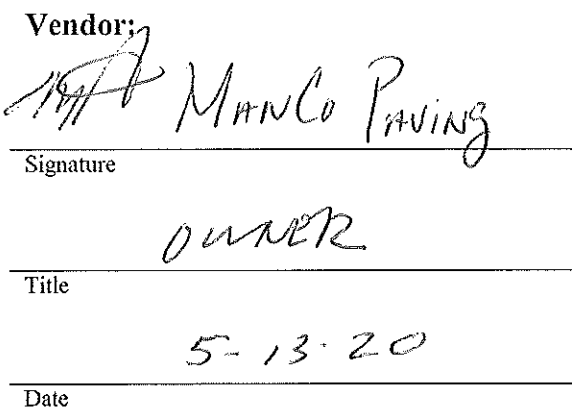 Vendor:
ManCo Paving
Signature
OWNER
Title
5-13-20
Date